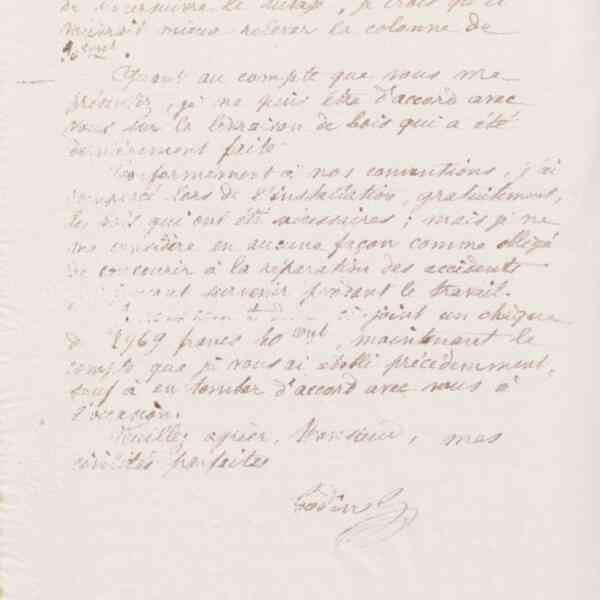 de poursuivre le ; je crois qu'il
vaudrait mieux relever la colonne de

Quant au compte que vous me
présentez, je ne puis être d'accord avec
vous sur la livraison de bois qui a été
dernièrement faite
Conformément à nos conventions, j'ai
lors de l'installation, gratuitement,
les bois qui ont été nécessaires; mais je ne
me considère en aucune façon comme obligé
de concourir à la réparation des accidents
survenir pendant le travail.
joint un chèque
de 1969 francs, maintenant le
compte que je vous ai établi précédemment,
sauf à en tomber d'accord avec vous à
l'occasion.
Veuillez agréer, Monsieur, mes
civilités parfaites
Godin